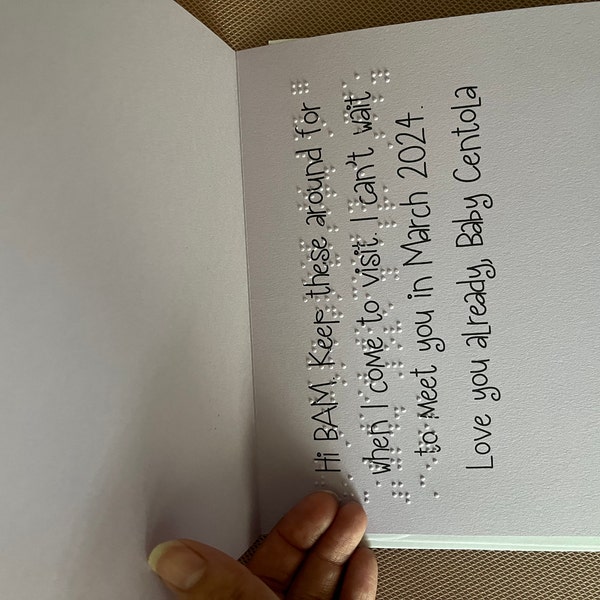 Hi BAM. Keep these around for
when I come to visit. I can't wait
to meet you in March 2024.
Love you already, Baby Centola